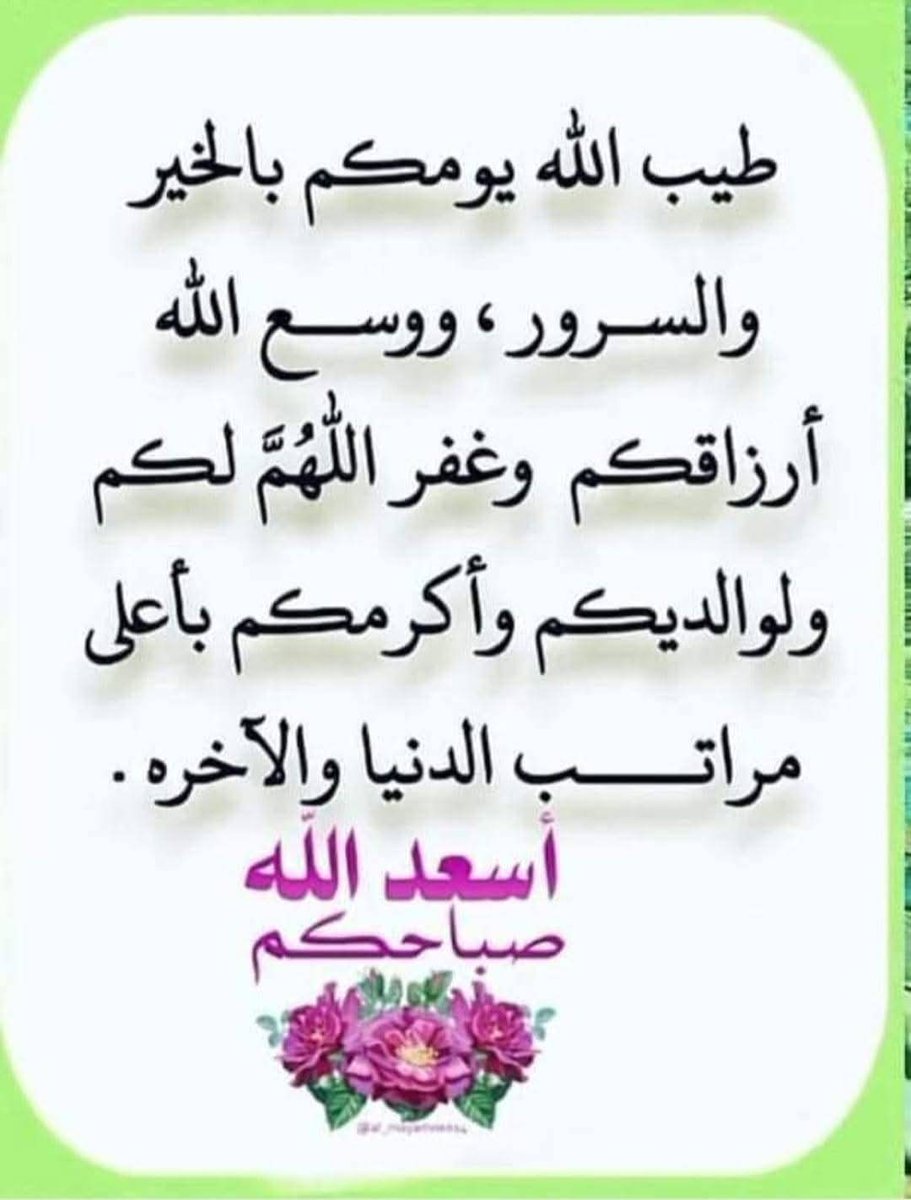 طيب الله يومكم بالخير
والسرور ، ووسع الله
أرزاقكم وغفر اللهُمَّ لكم
ولوالديكم وأكرمكم بأعلى
مراتب الدنيا والآخره .
أسعد الله
صباحكم